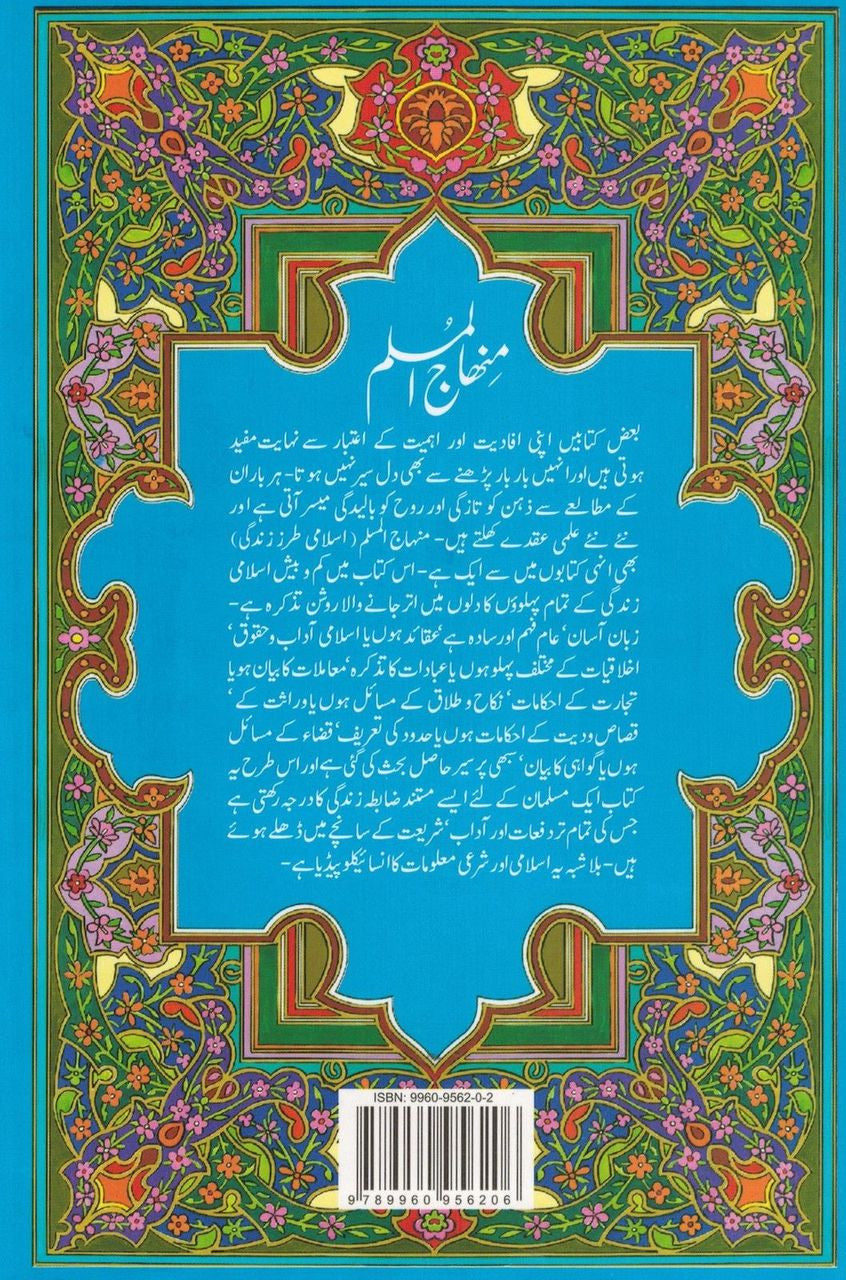 منهاج المسلم
بعض کتابیں اپنی افادیت اور اہمیت کے اعتبار سے نہایت مفید
ہوتی ہیں اور انہیں بار بار پڑھنے سے بھی دل سیر نہیں ہوتا- ہر بار ان
کے مطالعے سے ذہن کو تازگی اور روح کو بالیدگی میسر آتی ہے اور
نئے نئے علمی عقدے کھلتے ہیں- منہاج المسلم (اسلامی طرز زندگی)
بھی انہی کتابوں میں سے ایک ہے- اس کتاب میں کم و بیش اسلامی
زندگی کے تمام پہلوؤں کا دلوں میں اتر جانے والا روشن تذکرہ ہے-
زبان آسان‘ عام فہم اور سادہ ہے‘ عقائد ہوں یا اسلامی آداب و حقوق‘
اخلاقیات کے مختلف پہلو ہوں یا عبادات کا تذکرہ‘ معاملات کا بیان ہو یا
تجارت کے احکامات‘ نکاح و طلاق کے مسائل ہوں یا وراثت کے‘
قصاص و دیت کے احکامات ہوں یا حدود کی تعریف‘ قضاء کے مسائل
ہوں یا گواہی کا بیان‘ سبھی پر سیر حاصل بحث کی گئی ہے اور اس طرح یہ
کتاب ایک مسلمان کے لئے ایسے مستند ضابطہ زندگی کا درجہ رکھتی ہے
جس کی تمام تر دفعات اور آداب‘ شریعت کے سانچے میں ڈھلے ہوئے
ہیں- بلاشبہ یہ اسلامی اور شرعی معلومات کا انسائیکلوپیڈیا ہے-
ISBN: 9960-9562-0-2
9 789960 956206